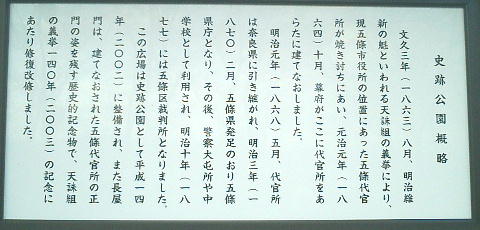 史跡公園概略
文久三年(一八六三)八月、明治維
新の魁といわれる天誅組の義挙により、
現五條市役所の位置にあった五條代官
所が焼き討ちにあい、元治元年(一八
六四)十月、幕府がここに代官所をあ
らたに建てなおしました。
明治元年(一八六八)五月、代官所
は奈良県に引き継がれ、明治三年(一
八七〇)二月、五條県発足のおり五條
県庁となり、その後、警察大屯所や中
学校として利用され、明治十年(一八
七七)には五條区裁判所となりました。
この広場は史跡公園として平成一四
年(二〇〇二)に整備され、また長屋
門は、建てなおされた五條代官所の正
門の姿を残す歴史的記念物で、天誅組
の義挙一四〇年(二〇〇三)の記念に
あたり修復改修しました。